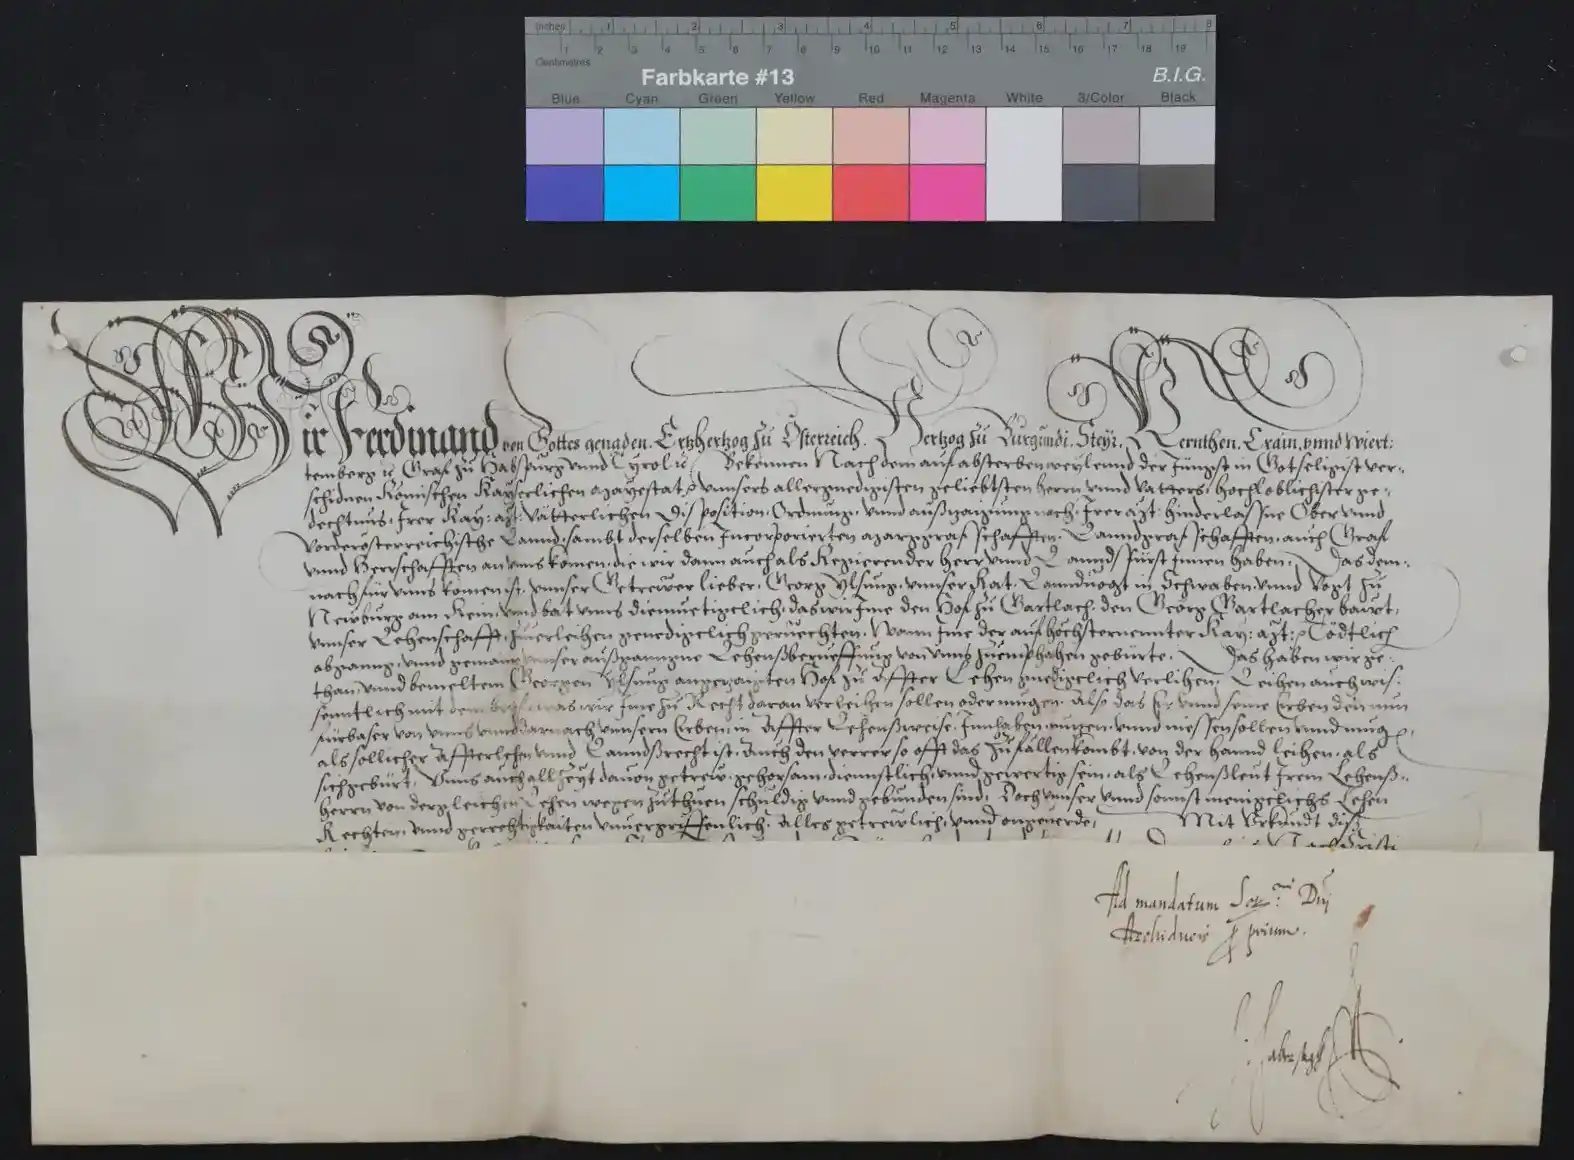 Inches 1 2 3 4 5 6 7 8
1 2 3 4 5 6 7 8 9 10 11 12 13 14 15 16 17 18 19
Centimetres
Farbkarte #13 B.I.G.
Blue Cyan Green Yellow Red Magenta White 3/Color Black
Wir Ferdinand von Gottes genaden. Ertzhertzog zu Österreich. Hertzog zu Burgundi. Steyr. Kernthen. Crain. vnnd Wiert:
temberg ꝛc Graf zu Habspurg vnnd Tyrol ꝛc Bekennen Nach dem auf absterben weylennd der Jüngst in Gotseligist ver-
schidnen Römischen Kayserlichen Mayestat ꝛc vnnsers allergnedigisten geliebtsten herrn vnnd Vatters, hochloblichster ge-
dechtnus, Irer Kay: Mt: Vätterlichen Disposition, Ordnung, vnnd außzaigung nach, Irer Mt: hinderlassne Ober vnnd
Vorderösterreichische Lannd, sambt derselben Incorporierten Marggrafschafften, Lanndgrafschafften, auch Graf
vnnd Herrschafften an vnns komen, die wir dann auch als Regierender Herr vnnd Lanndsfürst Innen haben, Das dem-
nach für vnns komen ist, vnnser Getrewer lieber, Georg Ylsung, vnnser Rat, Lanndvogt in Schwaben, vnnd Vogt zu
Newburg am Rein, vnd bat vnns diemuetigclich, das wir Ime den Hof zu Gartlach, den Georg Gartlacher bawt,
vnnser Lehenschafft, zuuerleihen genedigclich geruechten, Wann Ime der auf höchsternennter Kay: Mt: ꝛc Tödtlich
abganng, vnnd gemain vnnser außganngne Lehenßberueffung von vnns zuemphahen gebürte. Das haben wir ge-
than, vnnd bemeltem Georgen Ylsung angezaigten Hof zu Affter Lehen gnedigclich verlihen, Leihen auch wis-
senntlich mit dem brief, was wir Ime zu Recht daran verleihen sollen oder mugen. Also das Er vnnd seine Erben den nun
fürbaser von vnns vnnd darnach vnnsern Erben, in Affter Lehenßweise, Innhaben, nutzen, vnnd niessen sollen vnnd mugen,
als sollicher Affterlehen vnnd Lanndßrecht ist, Auch den verrer so offt das zu fällen kombt, von der hannd leihen, als
sich gebürt, Vnns auch allzeyt dauon getrew, gehorsam, dienstlich, vnnd gewertig sein, als Lehenßleut Irem Lehenß-
herrn von dergleichen Lehen wegen zuthuen schuldig vnnd gebunden sind, Doch vnnser vnnd sonnst menigclichs Lehen
Rechten, vnnd gerechtigkaiten vnuergriffenlich, Alles getrewlich, vnnd ongeuerde, Mit Vrkundt diß
Ad mandatum Ser.mi Dni
Archiducis ꝓprium.